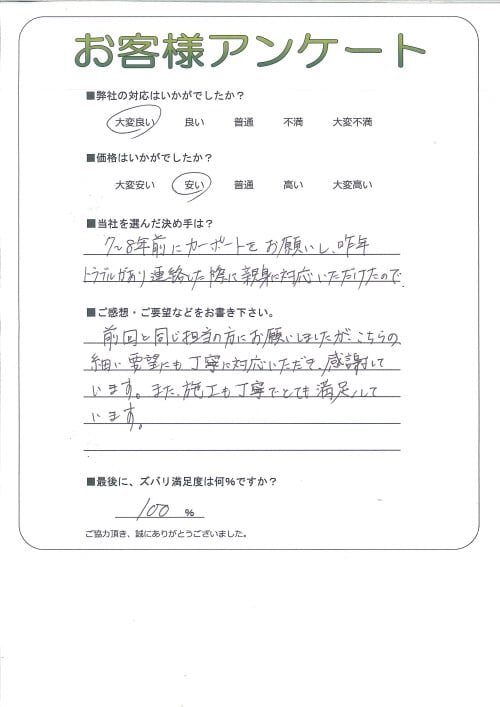 お客様アンケート
■弊社の対応はいかがでしたか？
大変良い 良い 普通 不満 大変不満
■価格はいかがでしたか？
大変安い 安い 普通 高い 大変高い
■当社を選んだ決め手は？
7〜8年前にカーポートをお願いし、昨年
トラブルがあり連絡した際に親身に対応いただけたので
■ご感想・ご要望などをお書き下さい。
前回と同じ担当の方にお願いしましたが、こちらの
細い要望にも丁寧に対応いただき、感謝して
います。また、施工も丁寧でとても満足して
います。
■最後に、ズバリ満足度は何％ですか？
100 %
ご協力頂き、誠にありがとうございました。